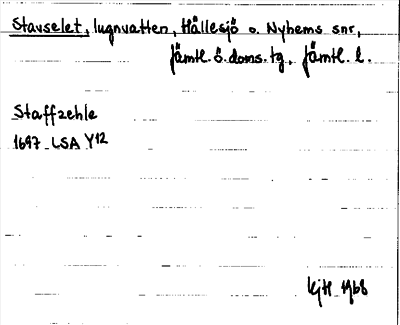 Stavselet, lugnvatten, Hällesjö o. Nyhems snr,
Jämtl. ö. doms. tg, Jämtl. l.
Staffzehle
1697 LSA Y12
1968